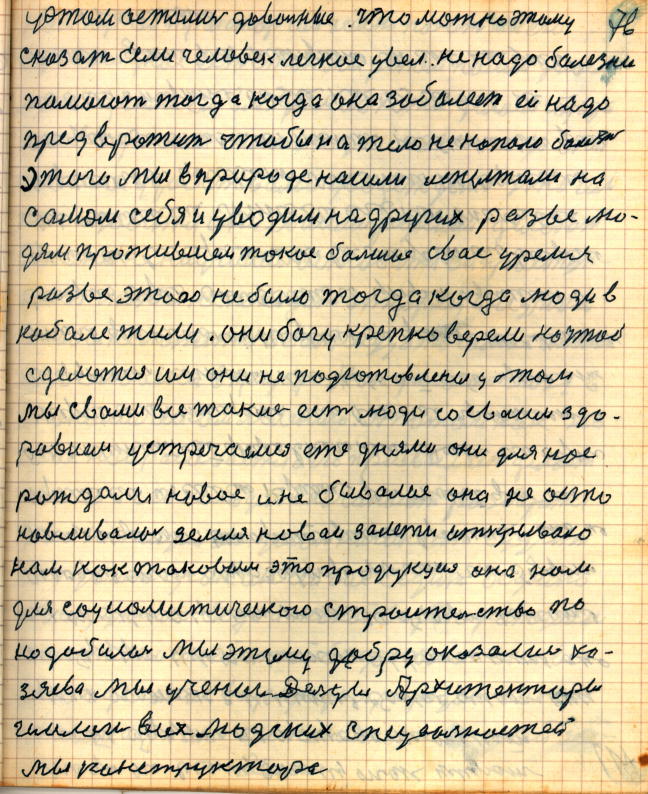 76
у этом остались довольные. что можно этому
сказат если человек легкое увел. не надо болезни
помогат тогда когда она заболеет ей надо
предвротит чтобы на тело не напало болезни
этого мы в природе нашли испытали на
самом себя и уводим на других разве лю-
дям протившем такое больше свае уремя
разве этого не было тогда когда люди в
кабале жили. они богу крепко верели но чтоб
сделатия им они не подготовлени у этом
мы свами все такие ест люди со своим здо-
ровием устречаемся еже днями они для нас
рождали новое и не бывалое она не оста
навливалас земля новаи залежи открывало
нам как таковым это продукция она нам
для социолитического строителство по
надобилас мы этому добру оказалис хо-
зяева мы учены Архитекторы
всех людских специолностей
мы конструктора